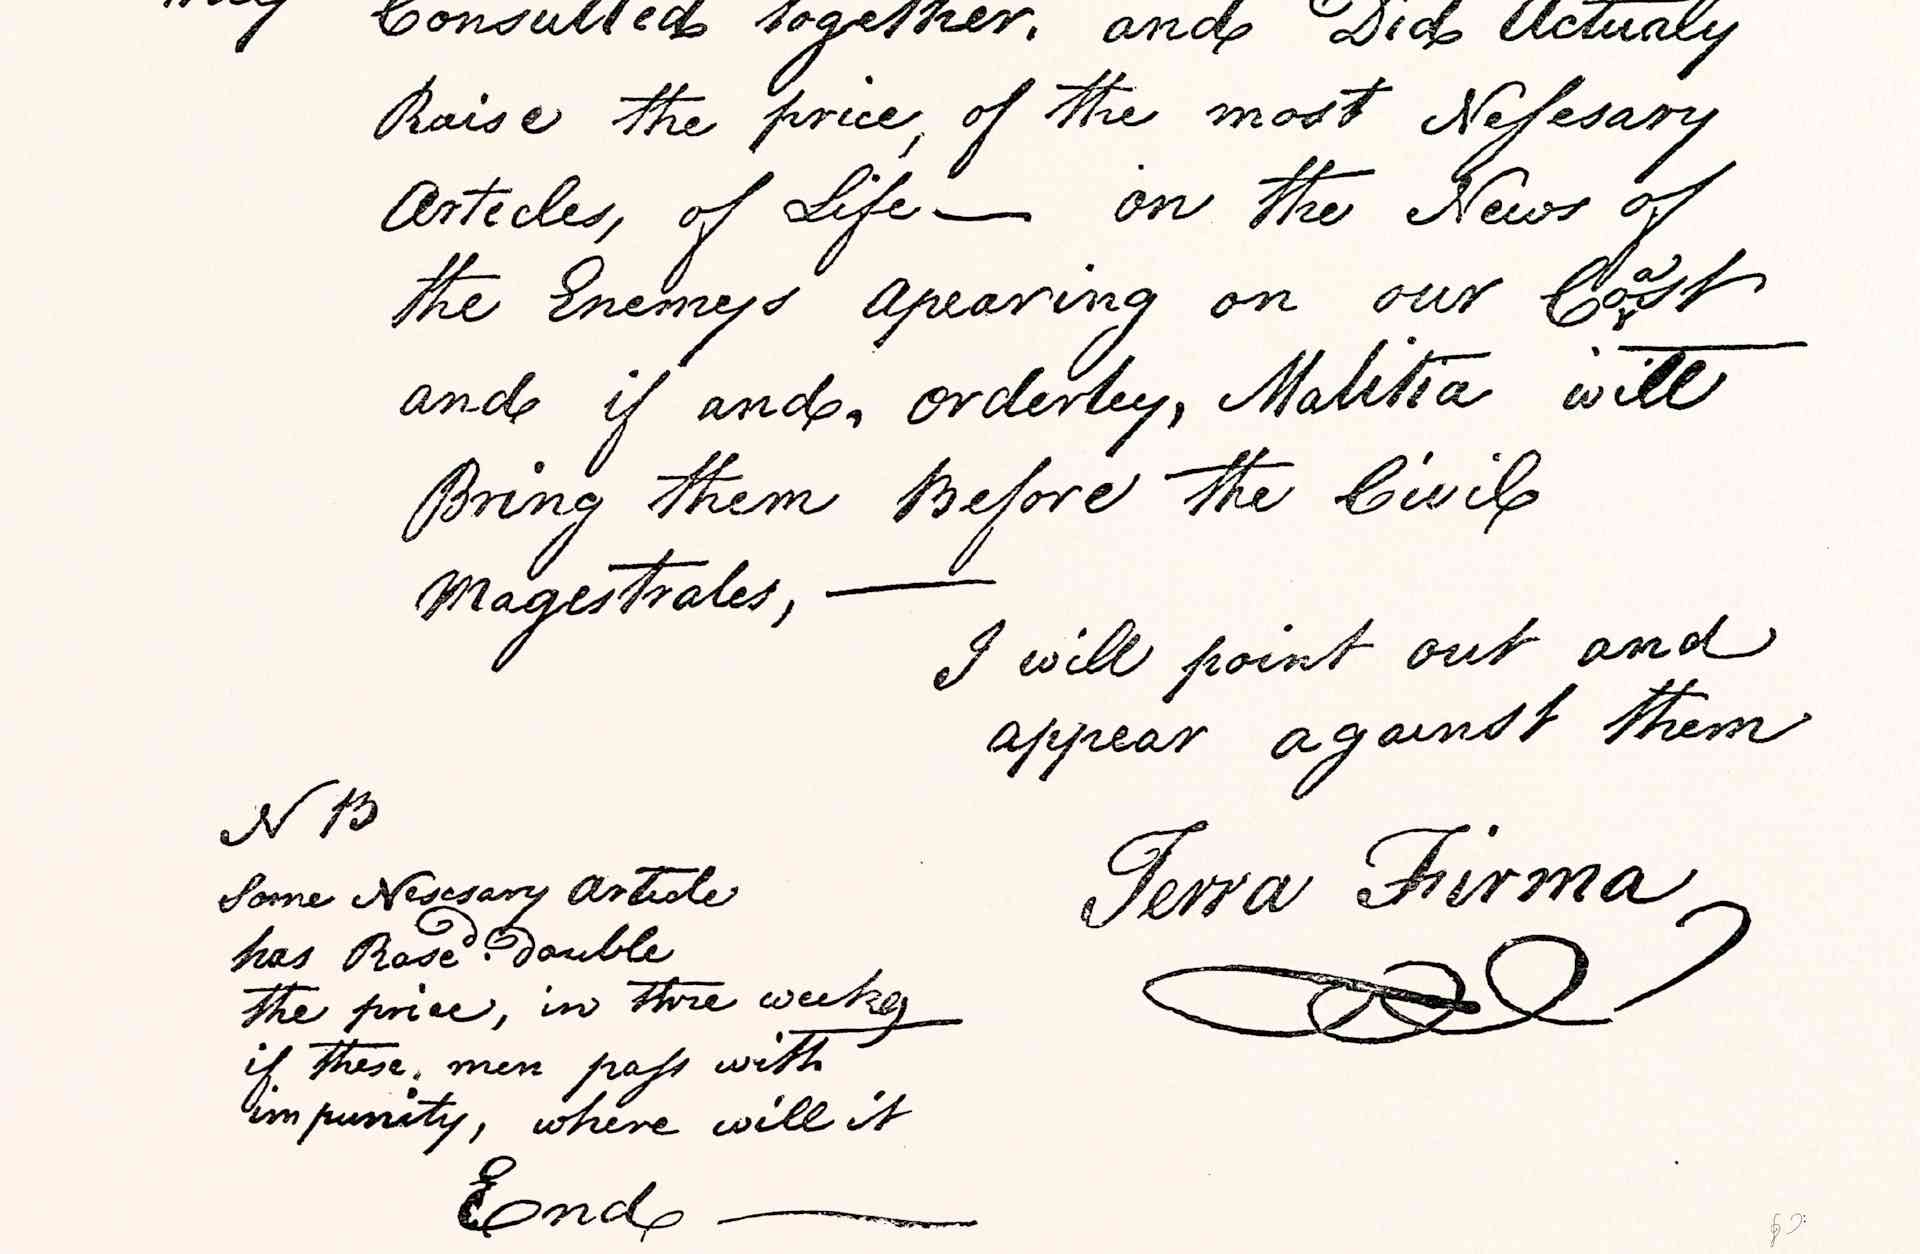 they Consulted together. and Did Actualy
Raise the price, of the most Nessesary
Articles, of Life— on the News of
the Enemeys apearing on our Coast
and if and, orderley, Malitia will
Bring them Before the Civil
Magestrales,—
I will point out and
appear against them
Terra Firma
N B
Some Nescsary Article
has Rose double
the price, in thre weeks
if these. men pass with
impunity, where will it
End—